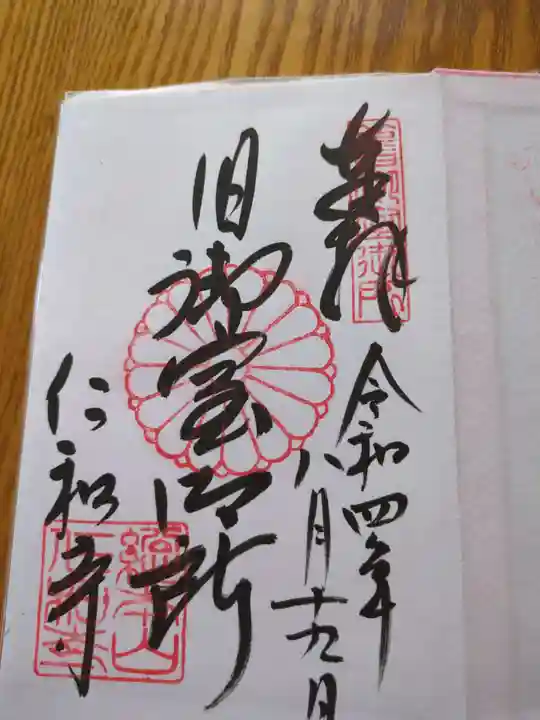 奉拝
令和四年
八月十九日
旧御室御所
仁和寺